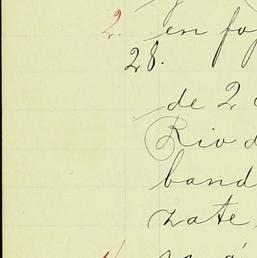 2. en fo
28.
de 2
Rio d
band
zate,